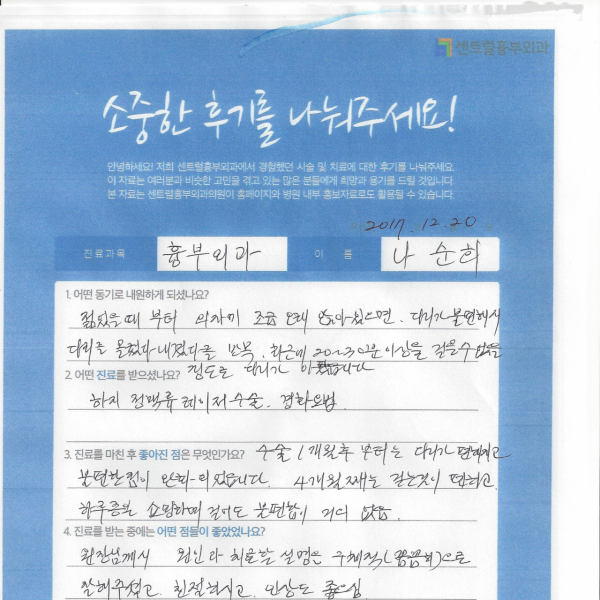 센트럴흉부외과
소중한 후기를 나눠주세요!
안녕하세요! 저희 센트럴흉부외과에서 경험했던 시술 및 치료에 대한 후기를 나눠주세요.
이 자료는 여러분과 비슷한 고민을 겪고 있는 많은 분들에게 희망과 용기를 드릴 것입니다.
본 자료는 센트럴흉부외과의원이 홈페이지와 병원 내부 홍보자료로도 활용될 수 있습니다.
2017.12.20
진료과목 흉부외과 이 름 나 순희
1. 어떤 동기로 내원하게 되셨나요?
젊었을때 부터 의자에 조금 오래 앉아있으면. 다리가 불편해서
다리를 올렸다 내렸다를 반복. 최근에 20~30분이상을 걸을수 없을
정도로 다리가
2. 어떤 진료를 받으셨나요?
하지 정맥류 레이저수술. 경화요법.
3. 진료를 마친 후 좋아진 점은 무엇인가요? 수술 1개월후 부터는 다리가 편해지고
불편한점이 완화 되었습니다. 4개월째는 걷는것이 편하고.
하루종일 쇼핑하며 걸어도 불편함이 거의 없음.
4. 진료를 받는 중에는 어떤 점들이 좋았었나요?
원장님께서 원인과 치료할 설명은 구체적(꼼꼼히)으로
잘해주셨고. 친절하시고. 인상도 좋으심